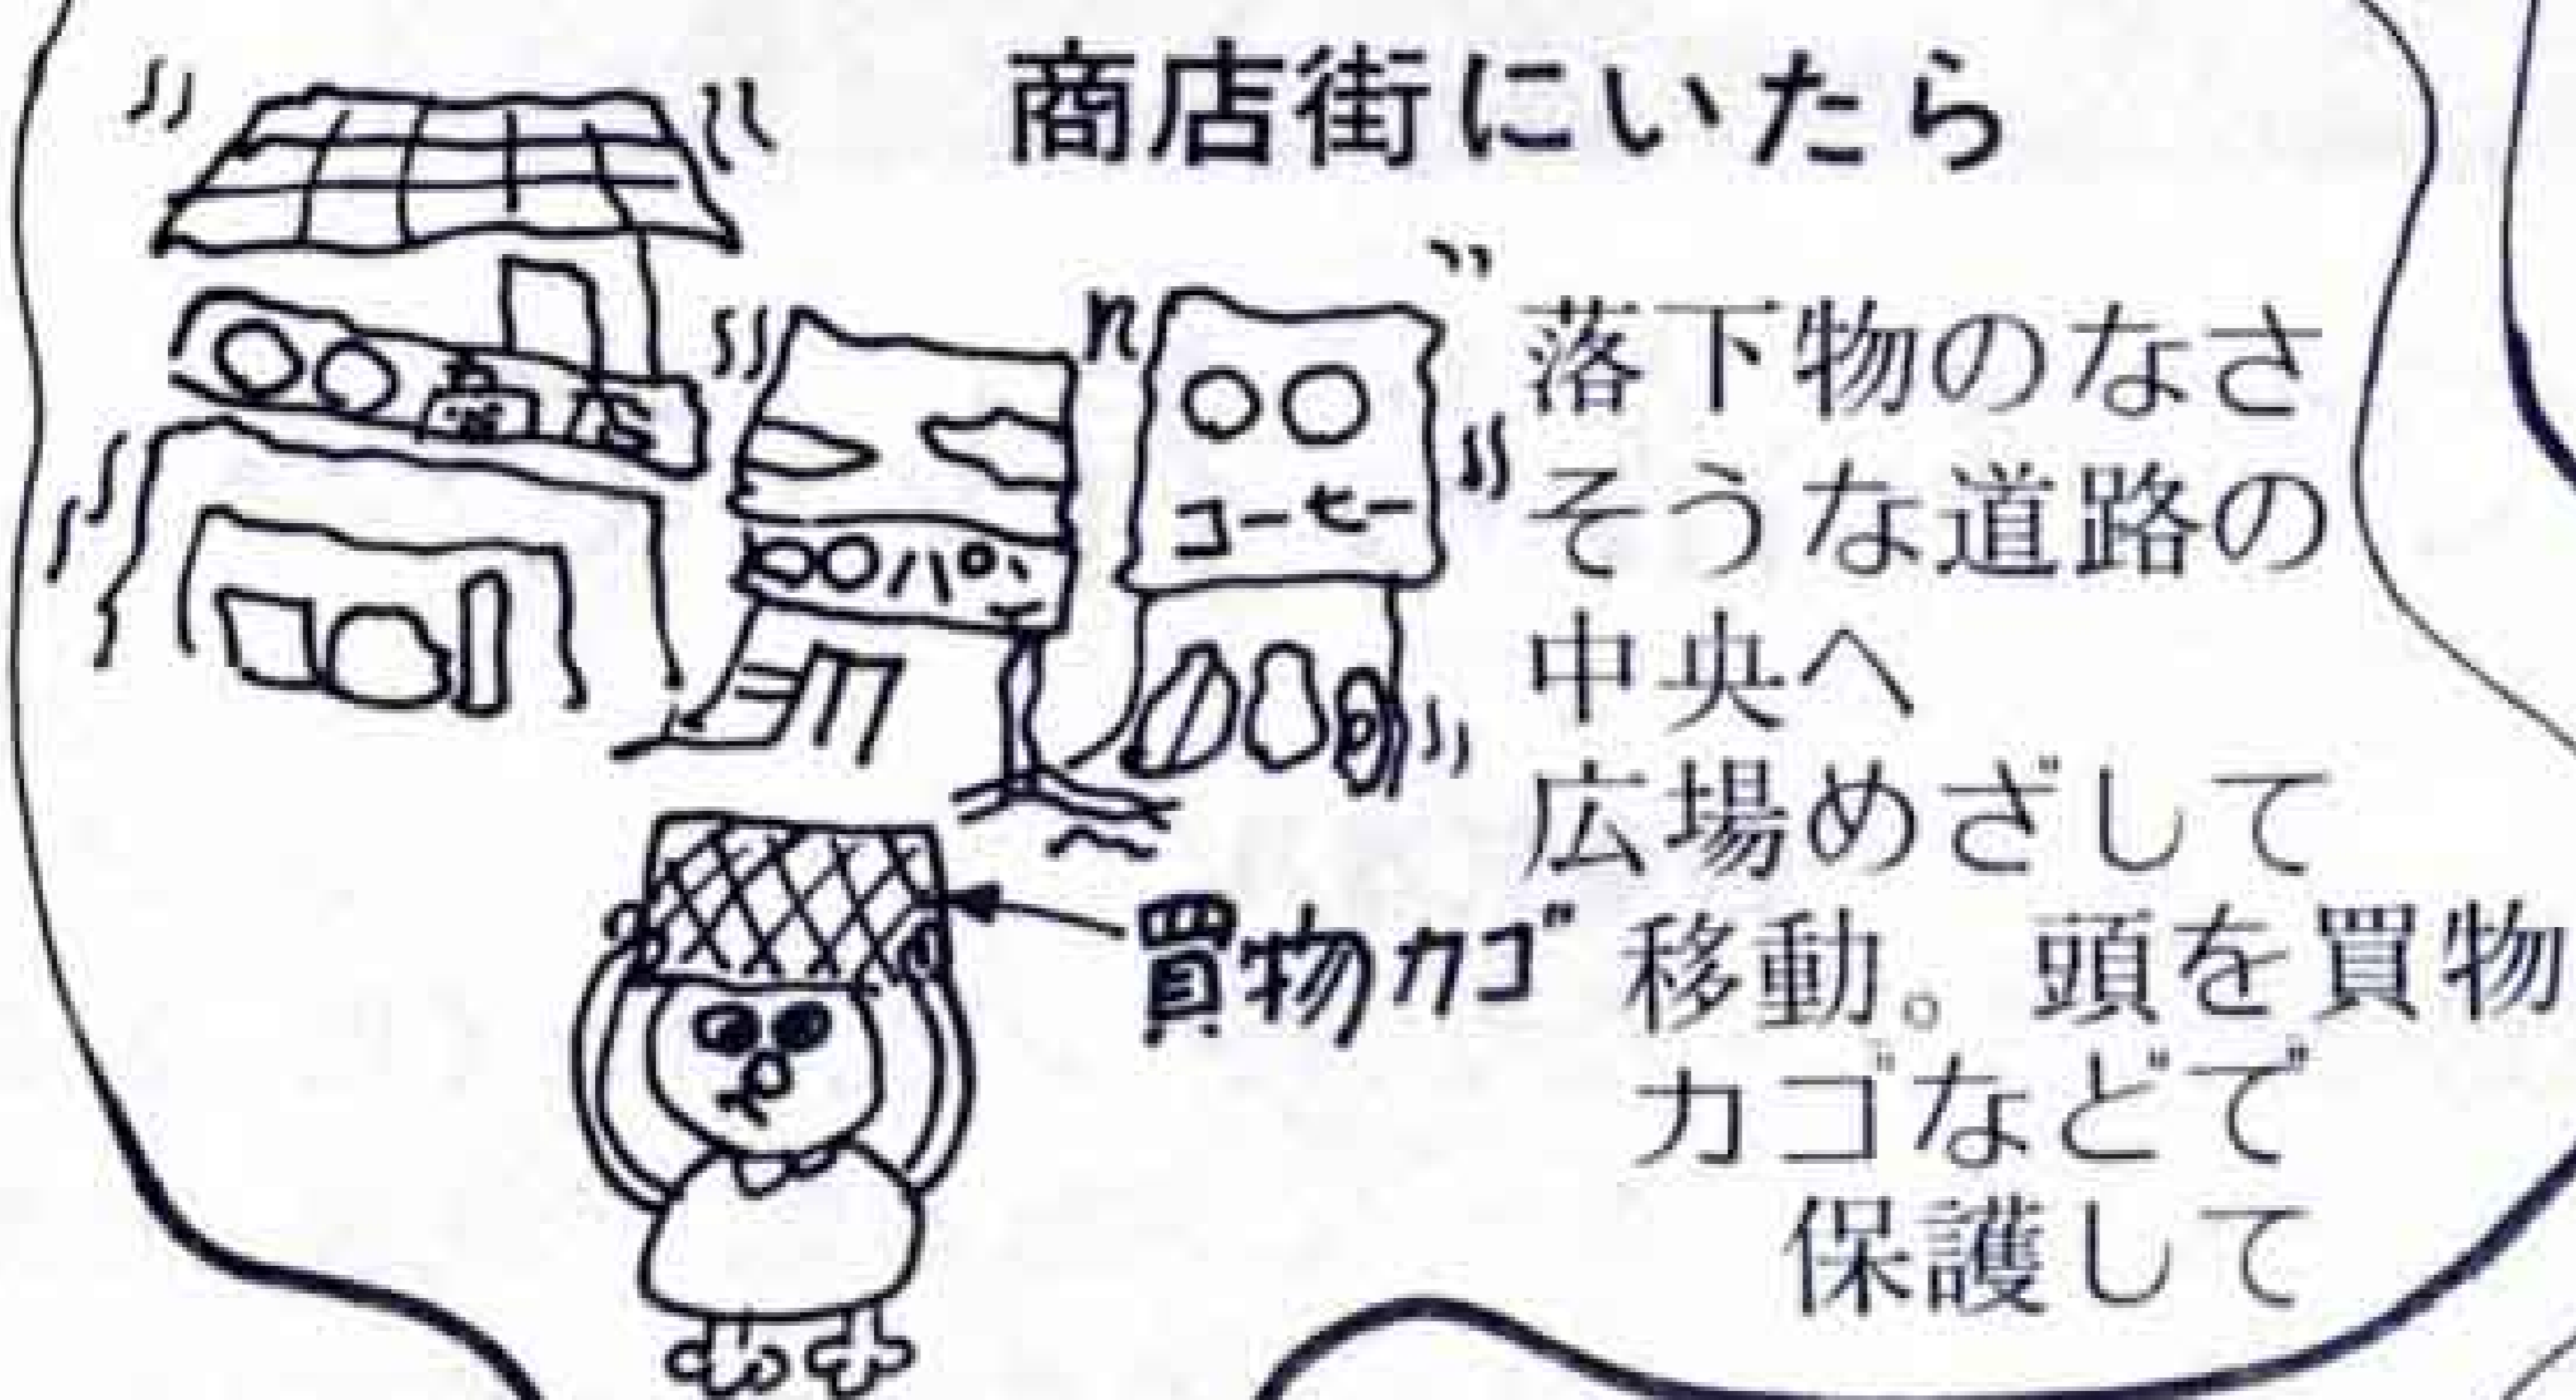 商店街にいたら
コーヒー
〇〇パン
落下物のなさ
そうな道路の
中央へ
広場めざして
移動。頭を買物
カゴなどで
保護して
買物カゴ